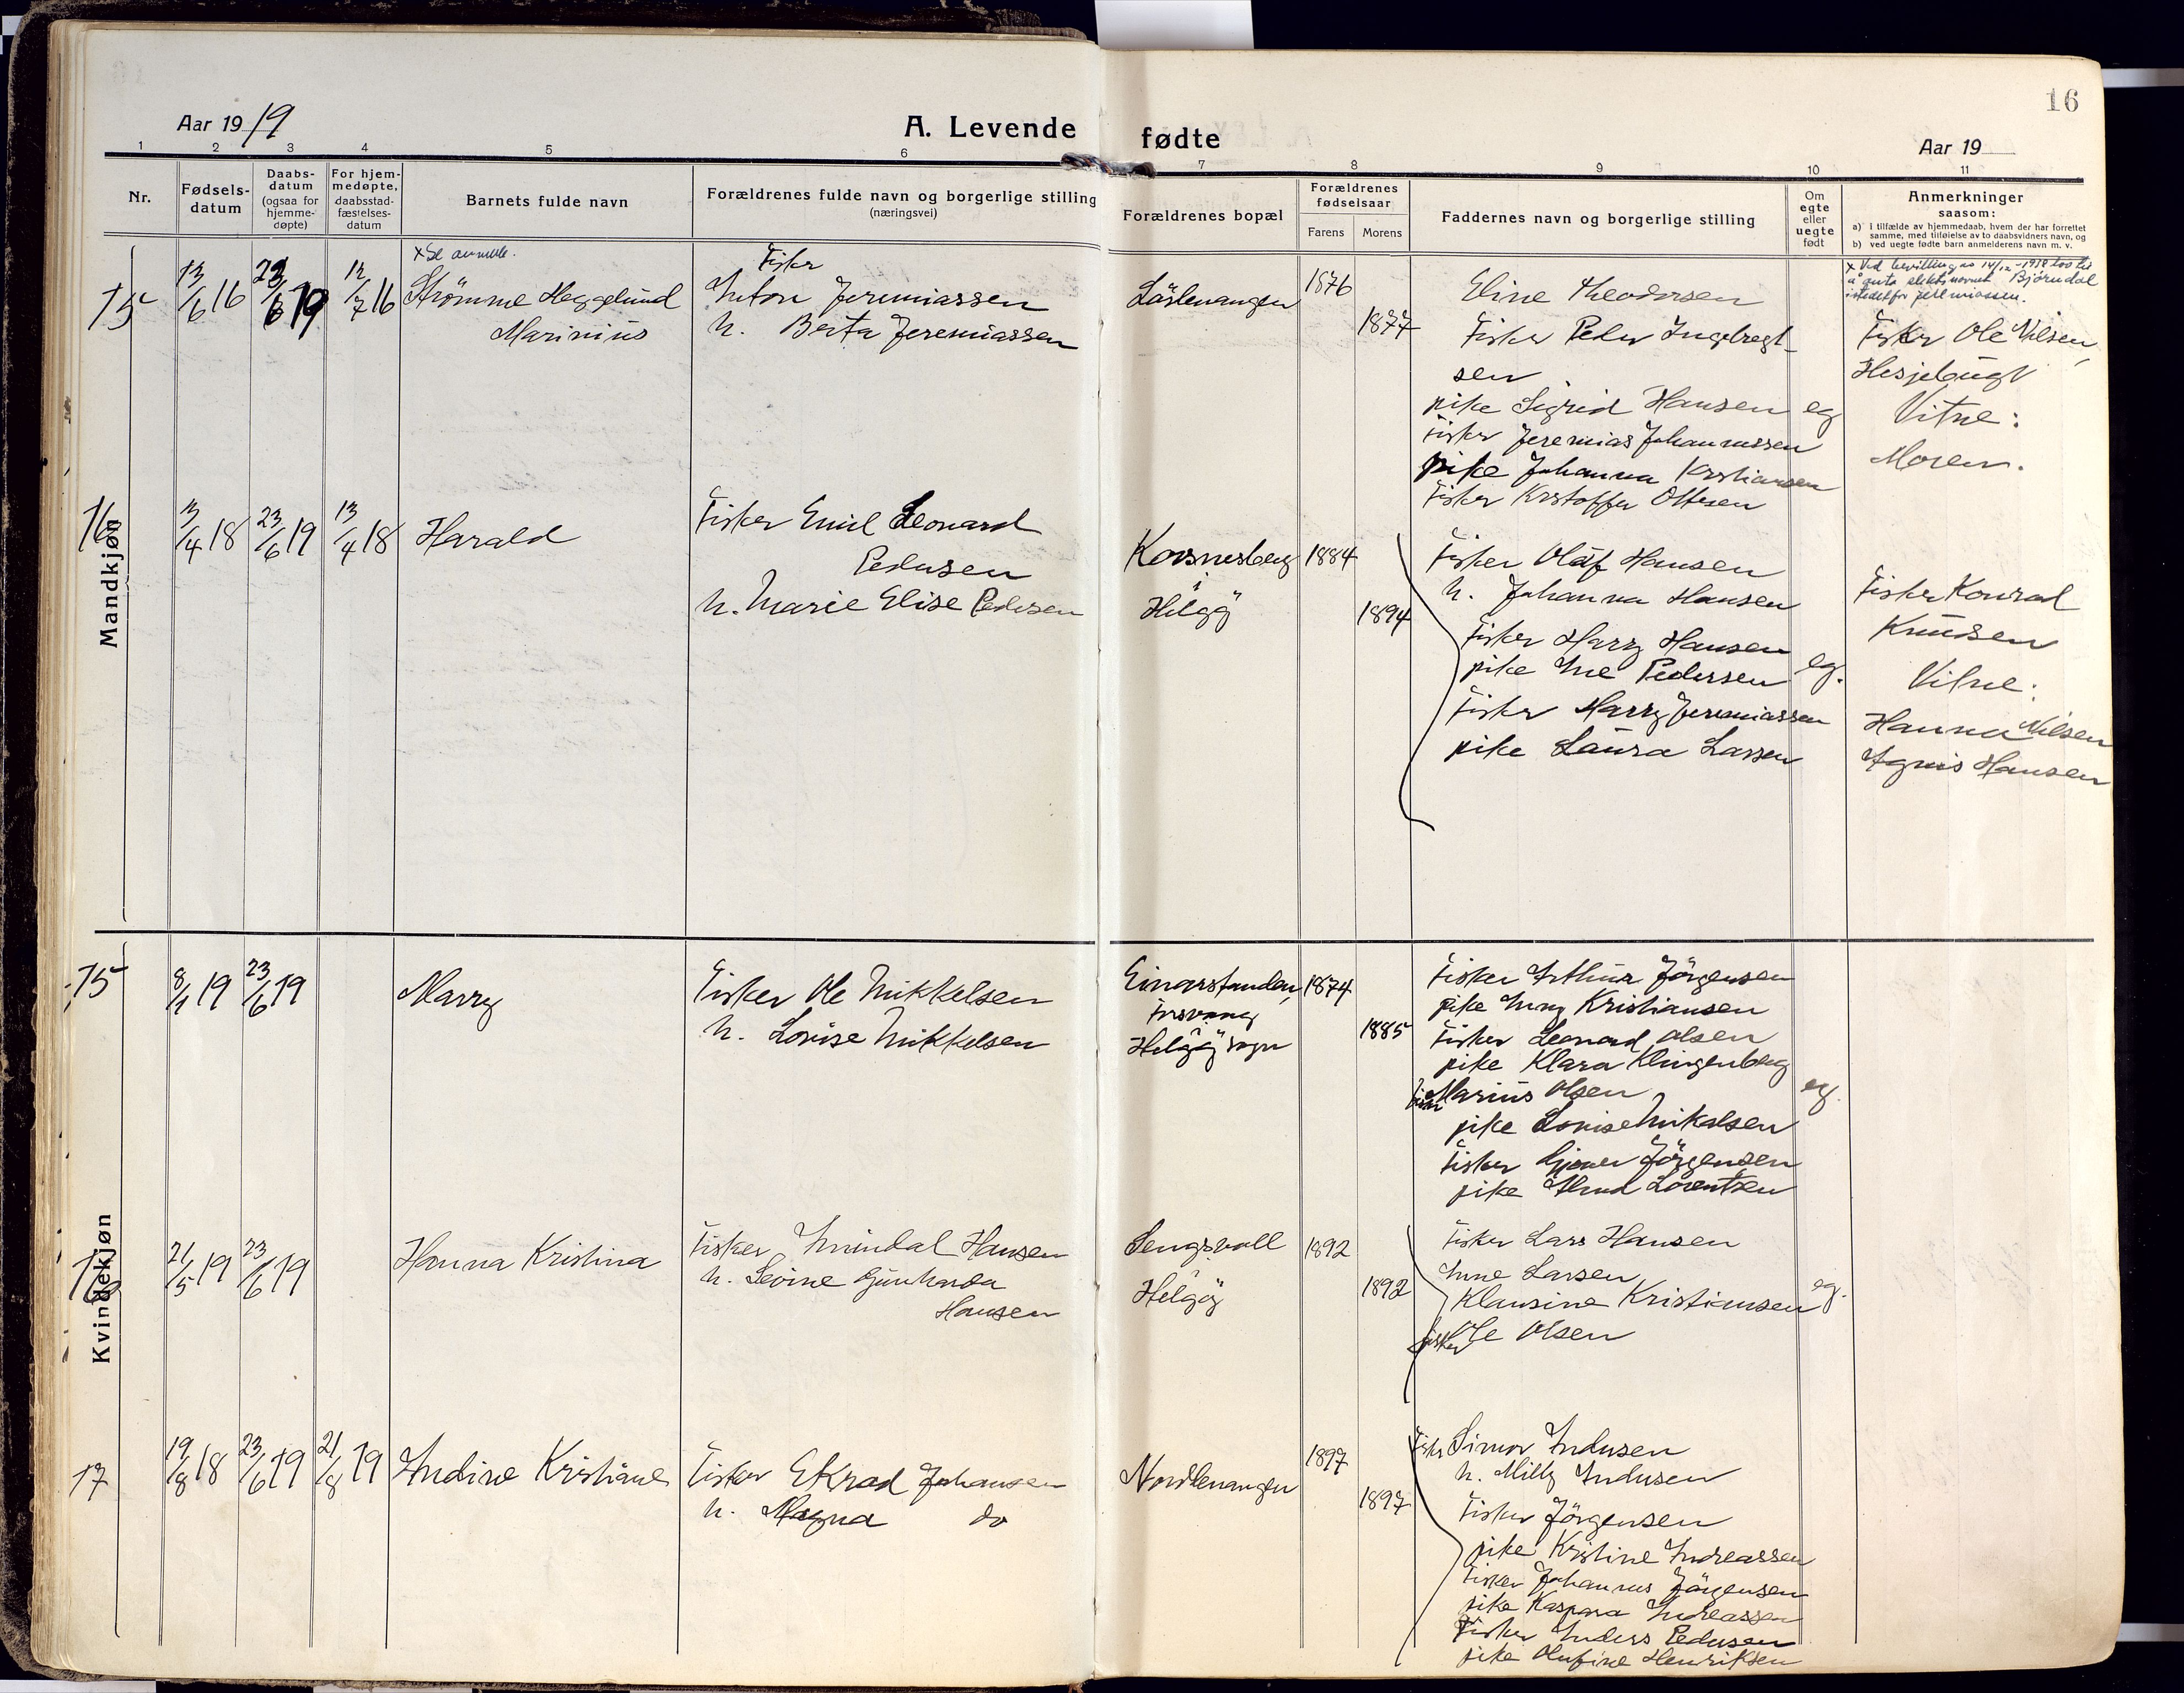 16
Aar 1919
A. Levende fødte
Aar 19
1 2 3 4 5 6 7 8 9 10 11
Nr.
Fødsels-
datum
Daabs-
datum
(ogsaa for
hjemme-
døpte)
For hjem-
medøpte,
daabsstad-
fæstelses-
datum
Barnets fulde navn
Forældrenes fulde navn og borgerlige stilling
(næringsvei)
Forældrenes bopæl
Forældrenes
fødselsaar
Farens Morens
Faddernes navn og borgerlige stilling
Om
egte
eller
uegte
født
Anmerkninger
saasom:
a) i tilfælde av hjemmedaab, hvem der har forrettet
samme, med tilføielse av to daabsvidners navn, og
b) ved uegte fødte barn anmelderens navn m. v.
Mandkjøn
15
13/6 16
23/6 19
12/7 16
x Se anmerk.
Strömme Heggelund
Marinius
Fisker
Anton Jeremiassen
h. Berta Jeremiassen
1876
1877
Eline Theodorsen
Fisker Peder Ingebregt-
sen
pike Sigrid Hansen
fisker Jeremias Johannessen
pike Johanna Kristiansen
Fisker Kristoffer Ottesen
eg
x Ved bevilling av 14/12-1938
slektsnavnet Bjørndal
istedetfor Jeremiassen.
Fisker Ole Nilsen,
Hesjebugt
Vitne:
Moren.
16
13/4 18
23/6 19
13/4 18
Harald
Fisker Emil Leonard
Pedersen
h. Marie Elise Pedersen
Korsnesberg
Helgöj
1884
1894
Fisker Olaf Hansen
h. Johanna Hansen
Fisker Harry Hansen
pike Ine Pedersen
Fisker Harry Jeremiassen
pike Laura Larssen
eg.
Fisker Konrad
Knudsen
Vitne:
Hanna Nilsen
Agnis Hansen
Kvindekjøn
15
8/1 19
23/6 19
Marry
Fisker Ole Mikkelsen
h. Lovise Mikkelsen
Einarstranden,
Helgöj sogn
1874
1885
Fisker Arthur Jörgensen
pike Kristiansen
Fisker Leonard Olsen
pike Klara Klingenberg
Fisker Marius Olsen
pike Lovise Mikalsen
Fisker Jörgensen
pike Lorentzen
eg.
16
21/5 19
23/6 19
Hanna Kristina
Fisker Amindal Hansen
h. Levine Gunharda
Hansen
Lengsvoll
Helgöj
1892
1892
Fisker Lars Hansen
Anne Larsen
Klausine Kristiansen
fisker Ole Olsen
eg.
17
19/8 18
23/6 19
21/8 19
Andine Kristiane
Fisker Ekrad Johansen
h. Magna do
Nordlenangen
1897
1897
Fisker Simon Andersen
h. Milly Andersen
Fisker Jörgensen
pike Kristine Andreassen
Fisker Johannes Jörgensen
pike Kaspara Andreassen
Fisker Anders Pedersen
pike Olufine Henriksen